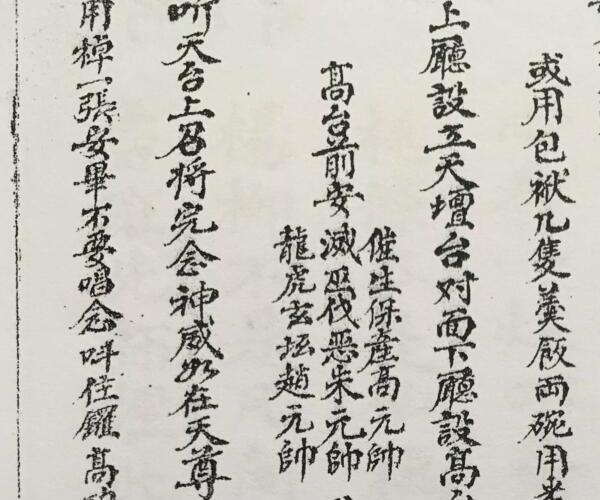 或用包袱几隻羹飯両碗用
上廳設立天壇台对面下廳設高
高台前安
催生保產高元帥
滅巫伐惡朱元帥
龍虎玄坛趙元帥
叩天台上召将完念神威如在天尊
用棹一張安畢不要唱念呌住鑼高